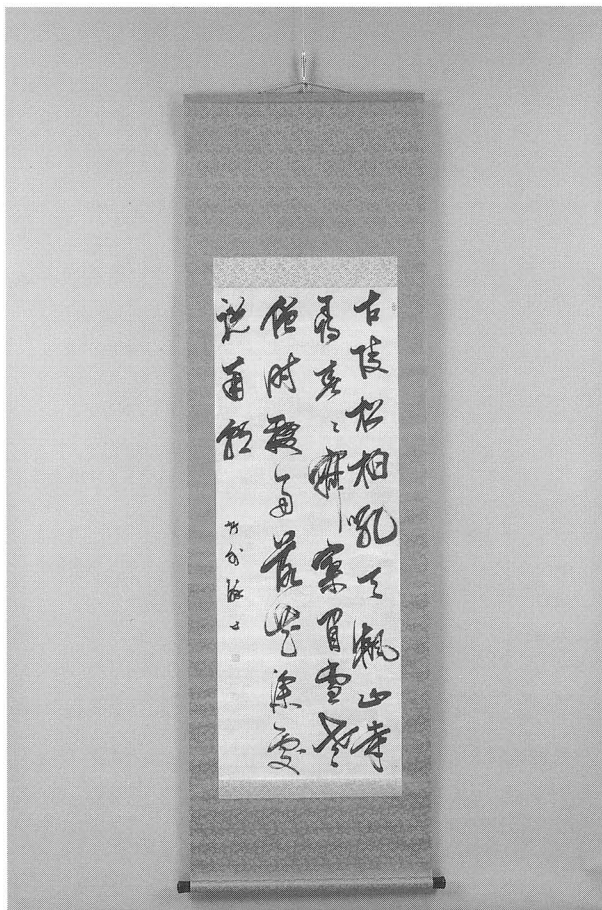 古陵松柏吼天飆山寺
尋春〻寂寥眉雪老
僧時輟帚落花深處
説南朝
竹外醉士